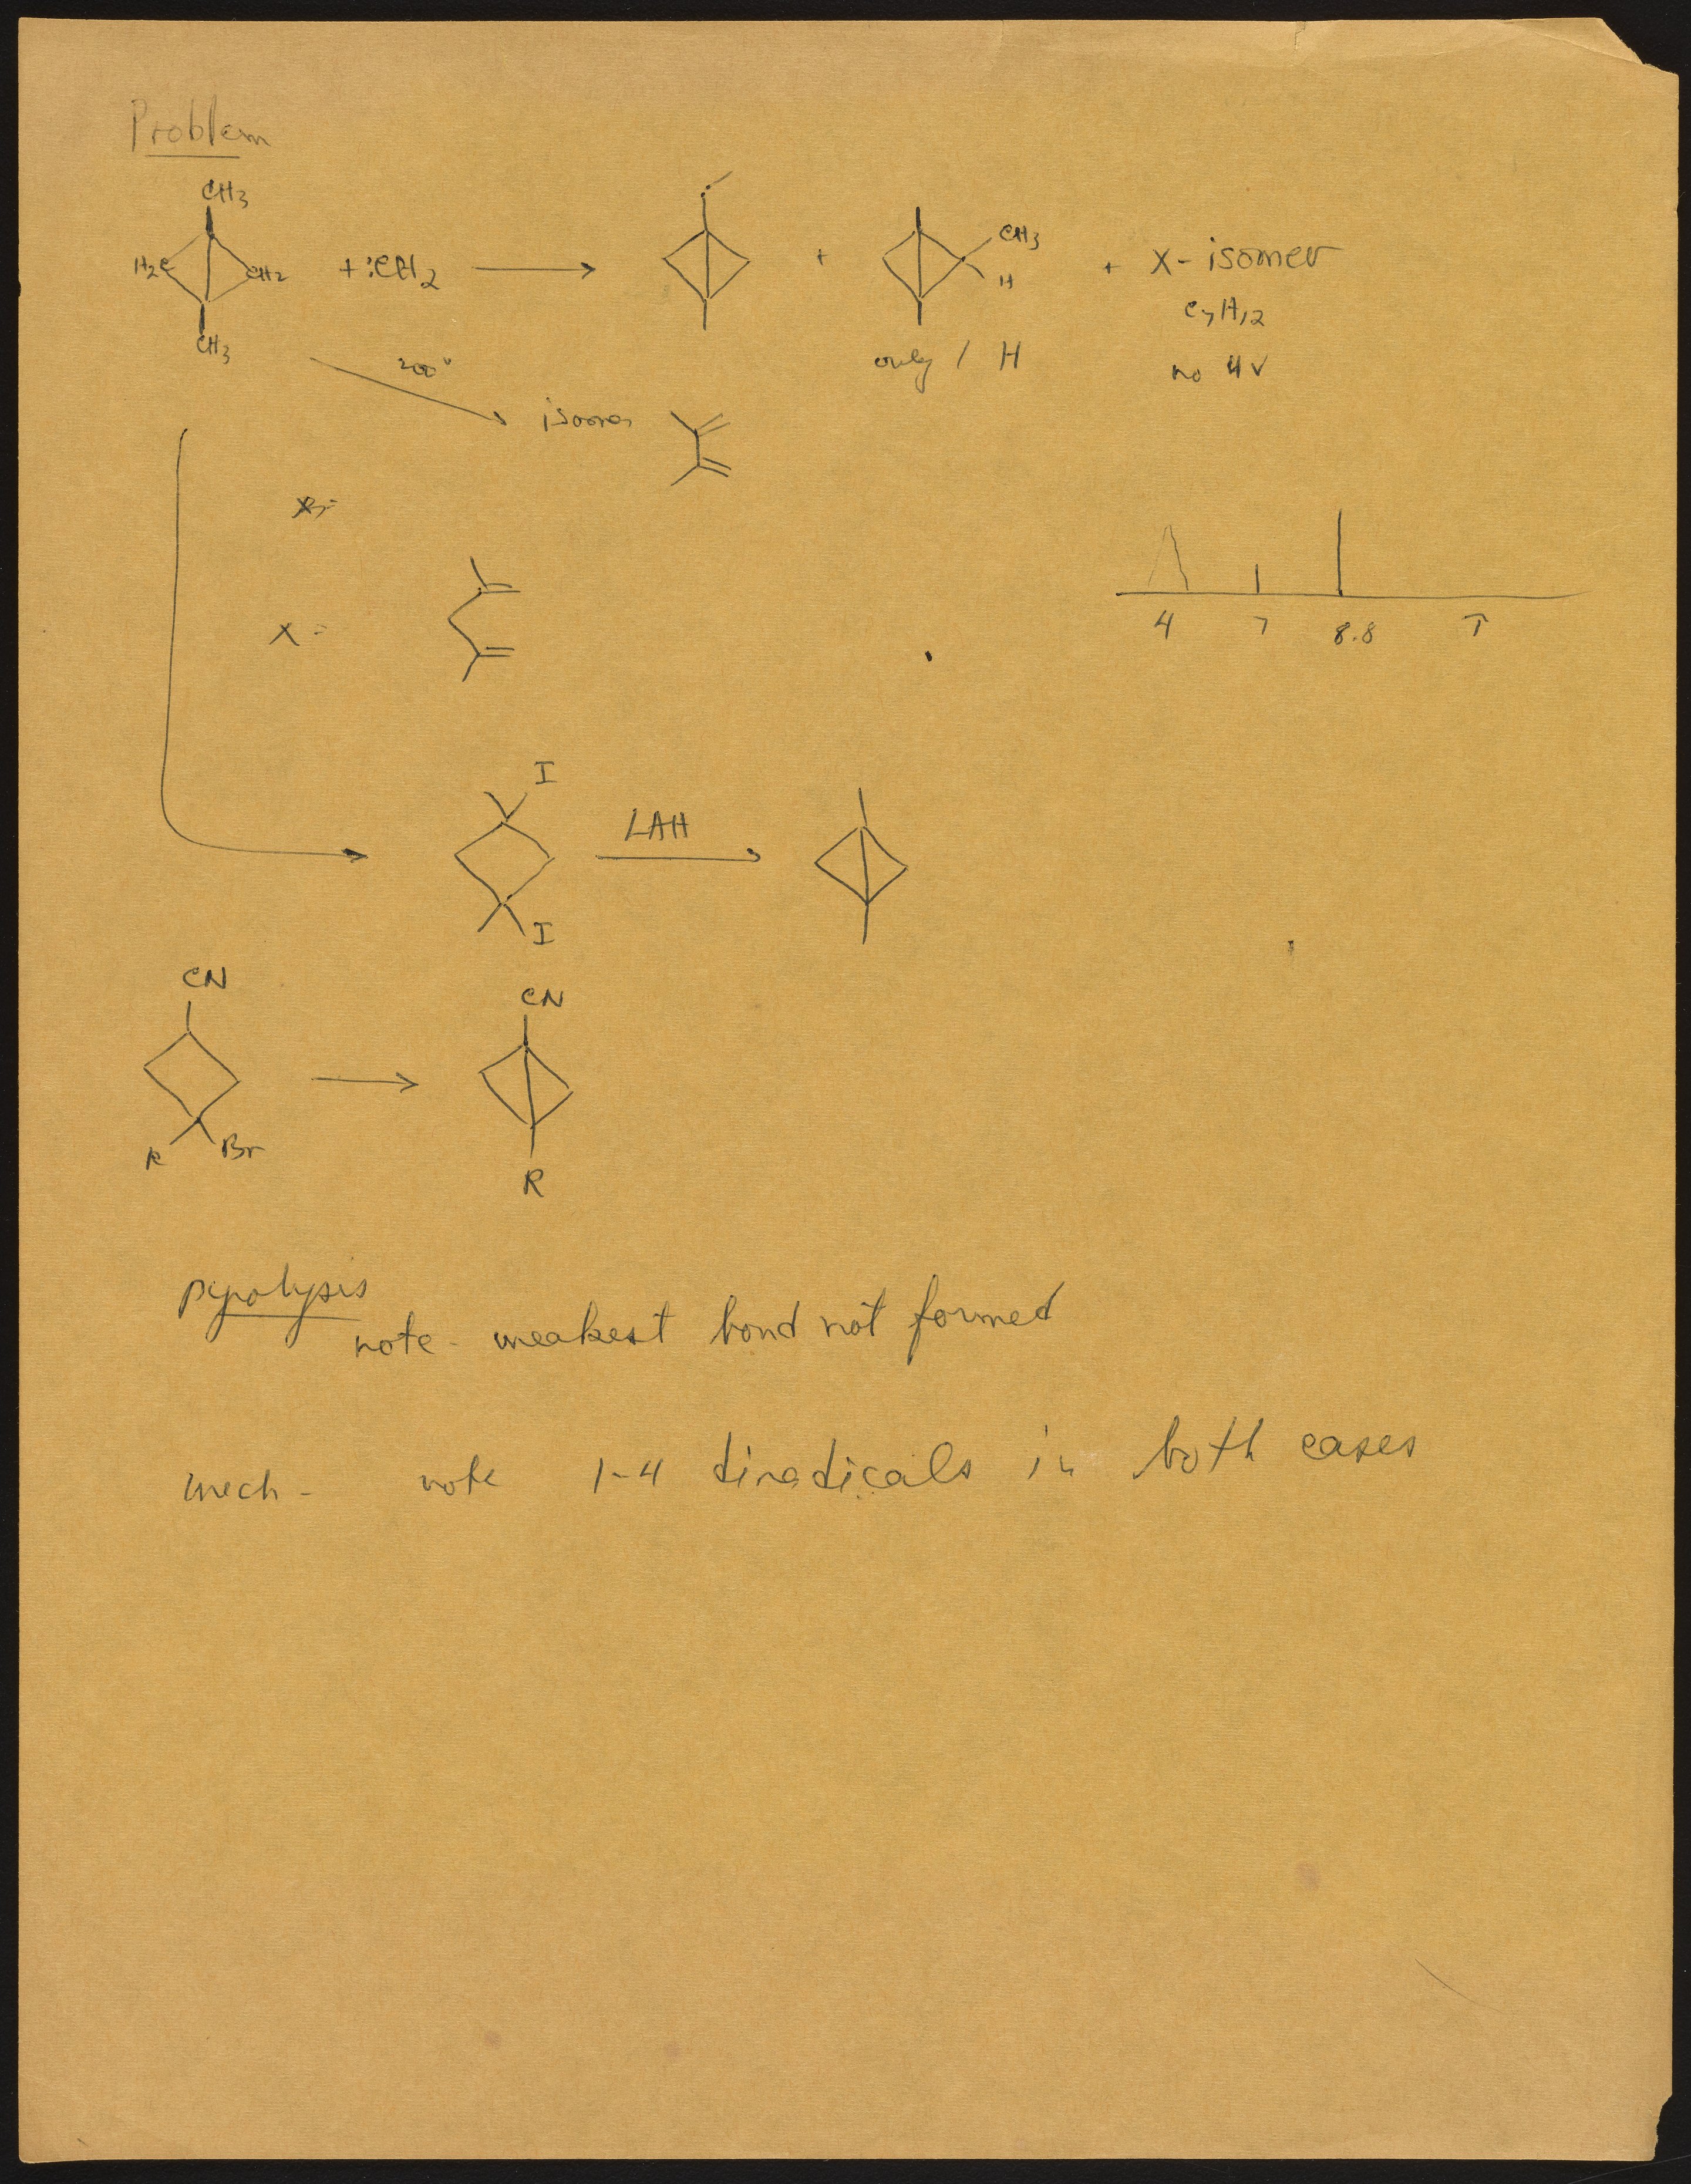 Problem
CH3
H2C CH2 + :CH2 + CH3 H + X - isomer
CH3
C7H12
only 1 H
no UV
200°
isomer
X =
4 7 8.8 τ
I
LAH
I
CN
CN
R Br
R
pyrolysis
note - weakest bond not formed
mech - note 1-4 diradicals in both cases